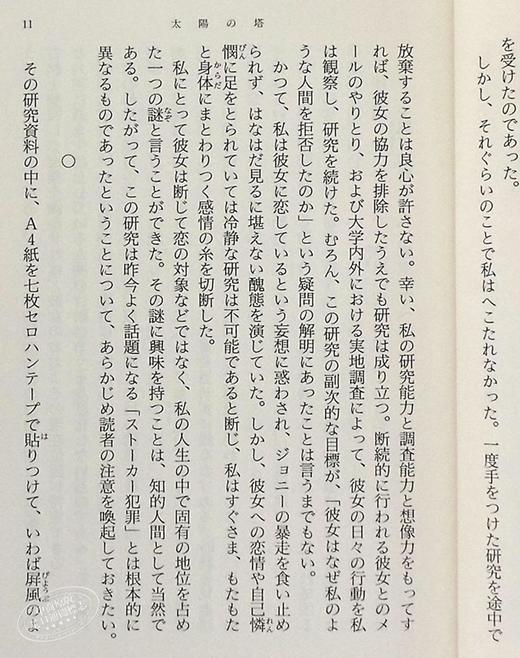 を受けたのであった。
しかし、それぐらいのことで私はへこたれなかった。一度手をつけた研究を途中で
太陽の塔
11
放棄することは良心が許さない。幸い、私の研究能力と調査能力と想像力をもってす
れば、彼女の協力を排除したうえでも研究は成り立つ。断続的に行われる彼女とのメ
ールのやりとり、および大学内外における実地調査によって、彼女の日々の行動を私
は観察し、研究を続けた。むろん、この研究の副次的な目標が、「彼女はなぜ私のよ
うな人間を拒否したのか」という疑問の解明にあったことは言うまでもない。
かつて、私は彼女に恋しているという妄想に惑わされ、ジョニーの暴走を食い止め
られず、はなはだ見るに堪えない醜態を演じていた。しかし、彼女への恋情や自己憐
憫に足をとられていては冷静な研究は不可能であると断じ、私はすぐさま、もたもた
と身体にまとわりつく感情の糸を切断した。
私にとって彼女は断じて恋の対象などではなく、私の人生の中で固有の地位を占め
た一つの謎と言うことができた。その謎に興味を持つことは、知的人間として当然で
ある。したがって、この研究は昨今よく話題になる「ストーカー犯罪」とは根本的に
異なるものであったということについて、あらかじめ読者の注意を喚起しておきたい。
○
その研究資料の中に、A4紙を七枚セロハンテープで貼りつけて、いわば屏風のよ